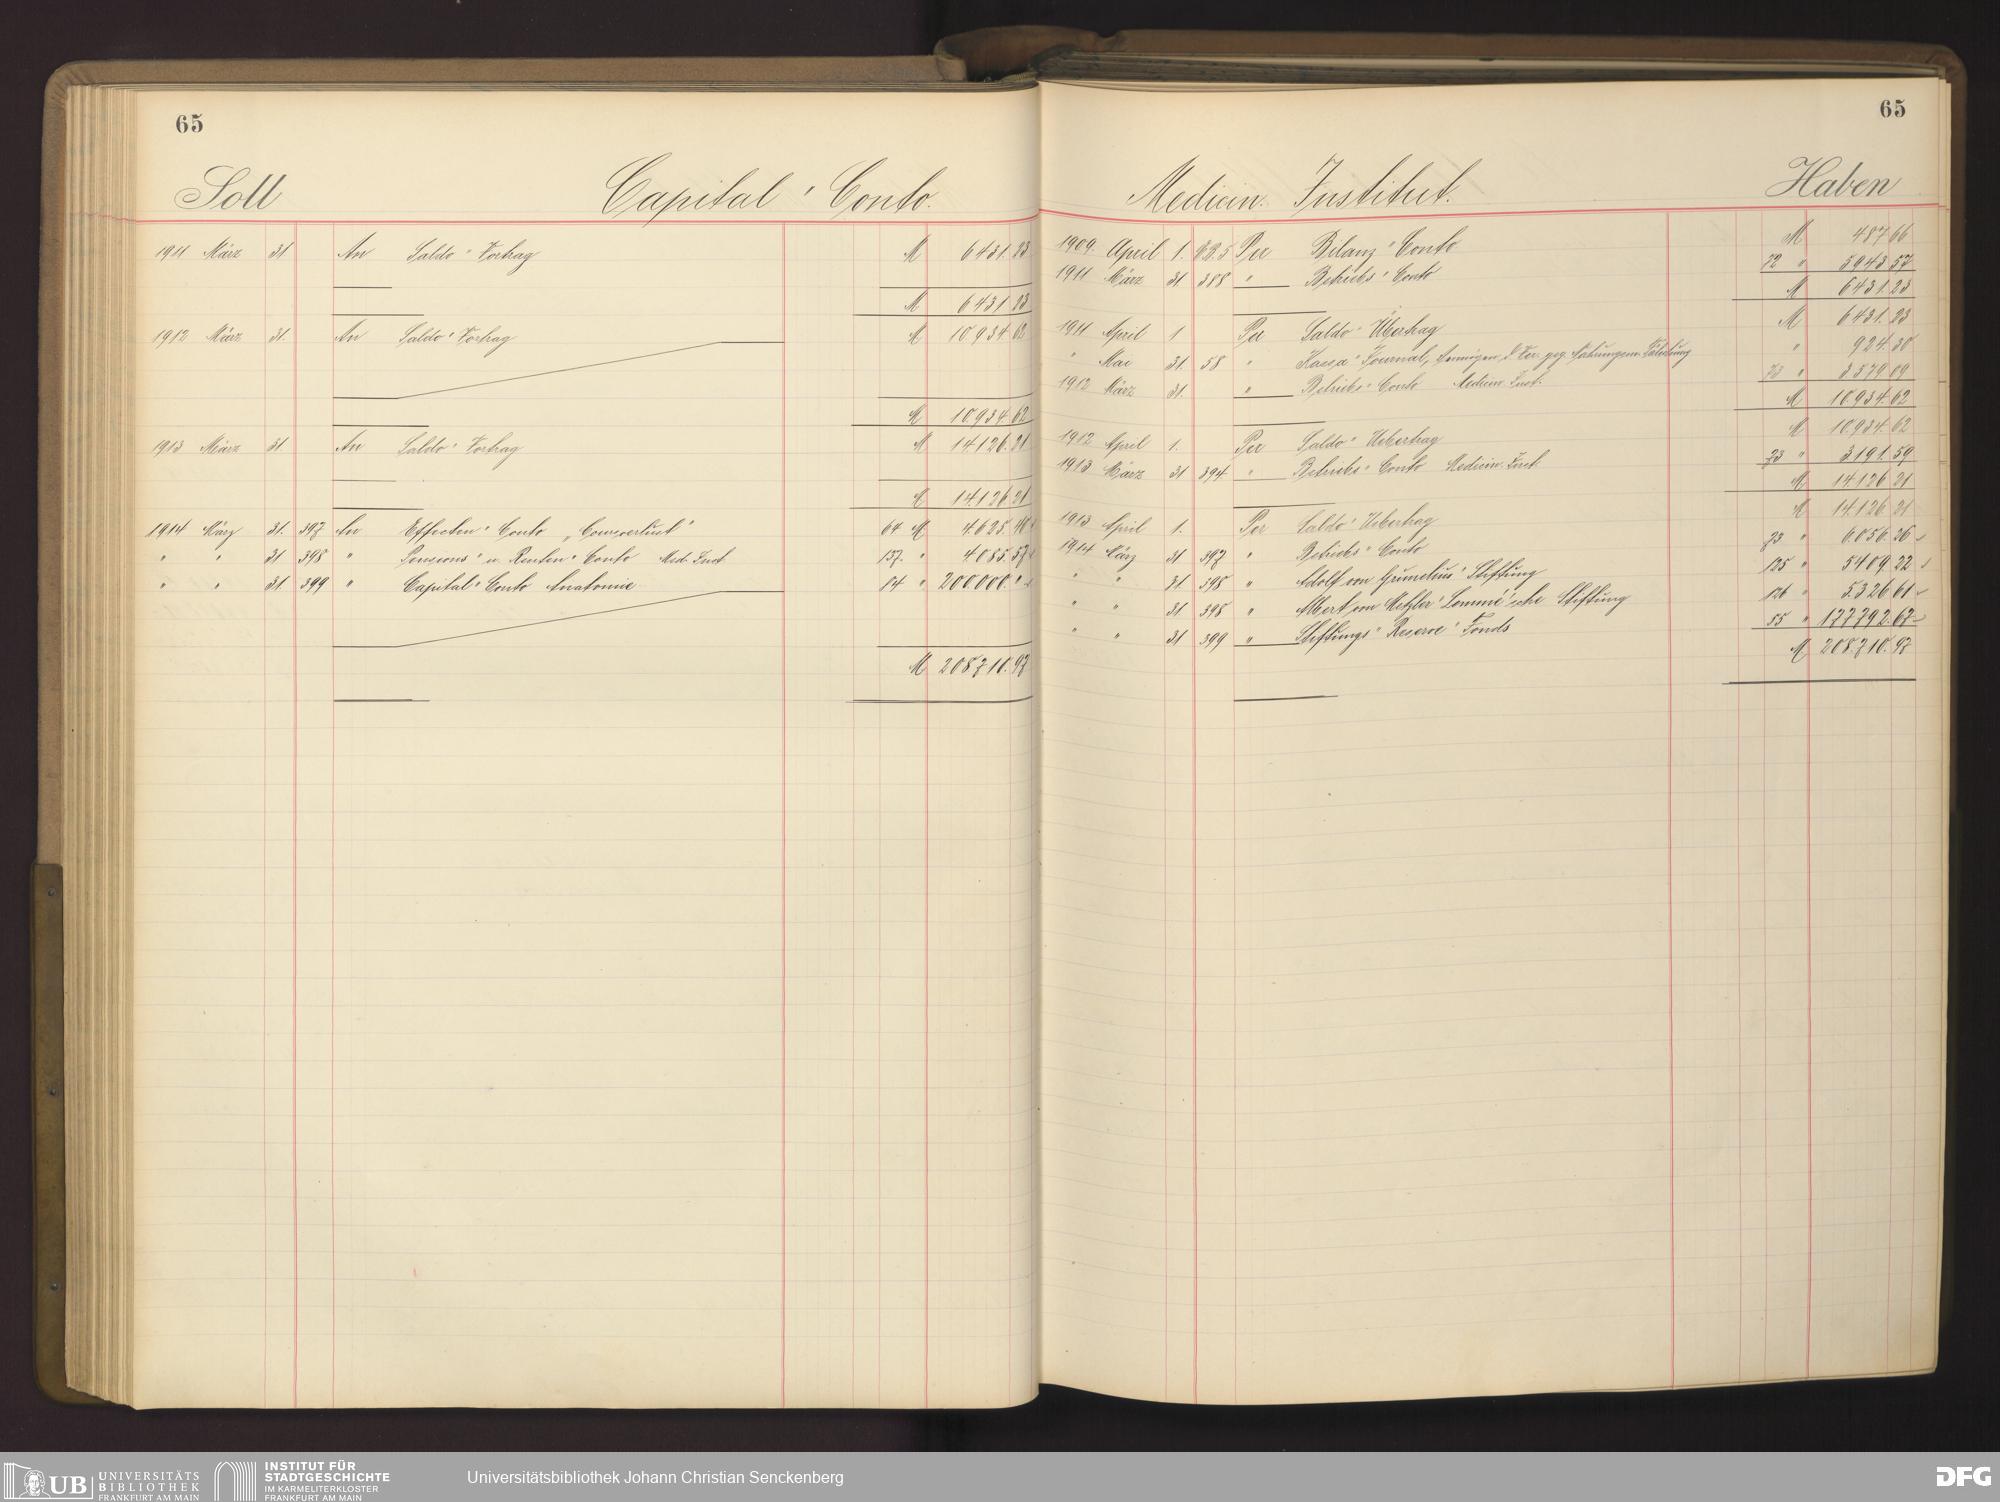 65
Soll Capital-Conto.
1911 März 31 An Saldo-Vortrag M 6431.23
M 6431.23
1912 März 31. An Saldo-Vortrag M 10934.62
M 10934.62
1913 März 31. An Saldo-Vortrag M 14126.21
M 14126.21
1914 März 31. 397 An Effecten-Conto „Coursverlust" 64 M 4625.40
" " 31 398 " Pensions- u. Renten-Conto Med. Inst 137. " 4085.57
" " 31. 399 " Capital-Conto Anatomie 84 " 200000. "
M 208710.97
65
Medicin. Institut. Haben
1909. April 1. B.B. 5 Per Bilanz-Conto M 487 66
1911 März 31 388 " Betriebs-Conto 72 " 5943 57
M 6431.23
1911 April 1 Per Saldo-Übertrag M 6431.23
" Mai 31. 58 " Kassa-Journal, Vermögen d. Ver. geg. Fälschung " 924.30
1912 März 31. " Betriebs-Conto Medicin. Inst. 73 " 3579 09
M 10934.62
1912 April 1. Per Saldo-Uebertrag M 10934.62
1913 März 31 394 " Betriebs-Conto Medicin. Inst. 73 " 3191.59
M 14126 21
1913 April 1. Per Saldo-Uebertrag M 14126.21
1914 März 31 397 " Betriebs-Conto 73 " 6056.26
" " 31 398 " Adolf von Grunelius-Stiftung 125 " 5409.22
" " 31 398 " Albert von Metzler-Lommé'sche Stiftung 126 " 5326 61
" " 31 399 " Stiftungs-Reserve-Fonds 55 " 177792.67
M 208710.97
UB UNIVERSITÄTS
BIBLIOTHEK
FRANKFURT AM MAIN
INSTITUT FÜR
STADTGESCHICHTE
IM KARMELITERKLOSTER
FRANKFURT AM MAIN
Universitätsbibliothek Johann Christian Senckenberg
DFG